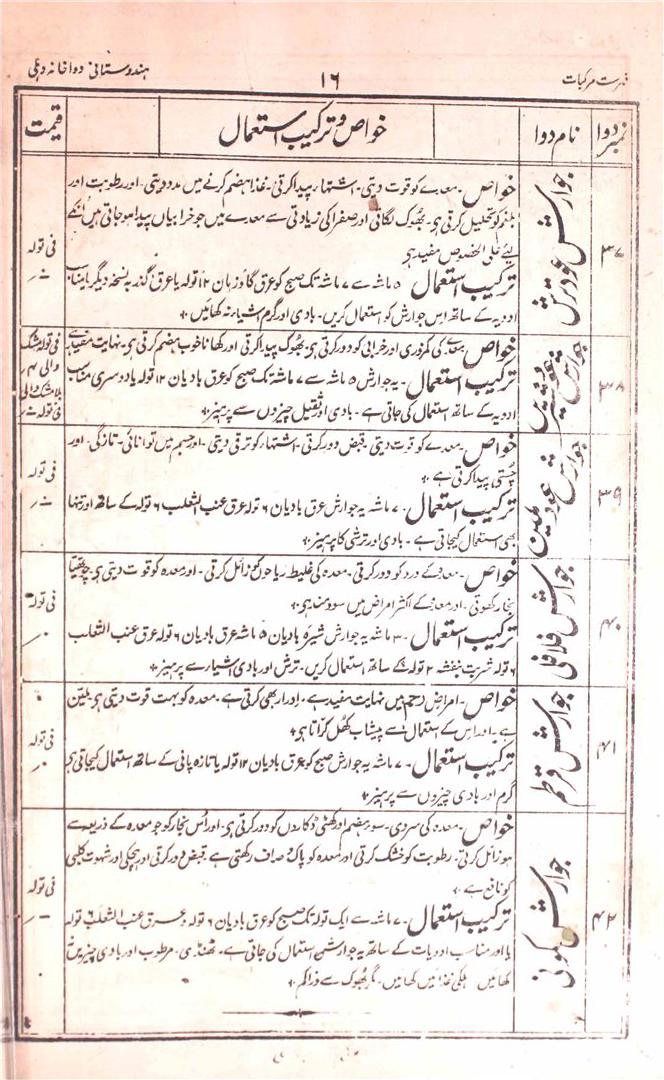 فہرست مرکبات ۱۶ ہندوستانی دواخانہ دہلی
نمبر دوا نام دوا خواص و ترکیب استعمال قیمت
۳۷ جوارش عود ترش
خواص ۔ معدے کو قوت دیتی ۔ اشتہاء پیدا کرتی ۔ غذا ہضم کرنے میں مدد دیتی ۔ اور رطوبت اور
بلغم کو تحلیل کرتی ہی ۔ بھوک لگاتی اور صفرا کی زیادتی سے معدے میں جو خرابیاں پیدا ہو جاتی ہیں انکے
لیے علی الخصوص مفید ہی
ترکیب استعمال ۵ ماشہ سے ۷ ماشہ تک صبح کو عرق گاؤزبان ۱۲ تولہ یا عرق گذر یہ نسخہ دیگر یا مناسب
ادویہ کے ساتھ اس جوارش کو استعمال کریں ۔ بادی اور گرم اشیاء نہ کھائیں ۔
فی تولہ
۳۸ جوارش عود شیریں
خواص ۔ معدے کی کمزوری اور خرابی کو دور کرتی ہی ۔ بھوک پیدا کرتی اور کھانا خوب ہضم کرتی ہی ۔ نہایت مفید ہے
ترکیب استعمال ۔ یہ جوارش ۵ ماشہ سے ۷ ماشہ تک صبح کو عرق بادیان ۱۲ تولہ یا دوسری مناسب
ادویہ کے ساتھ استعمال کی جاتی ہے ۔ بادی اور ثقیل چیزوں سے پرہیز ۔
فی تولہ مشک
والی ۴ر
بلا مشک والی
فی تولہ
۳۹ جوارش عود ملین
خواص ۔ معدے کو قوت دیتی ۔ قبض دور کرتی ۔ اشتہاء کو ترقی دیتی ۔ اور جسم میں توانائی ۔ تازگی ۔ اور
چستی پیدا کرتی ہے ۔
ترکیب استعمال ۔ ۷ ماشہ یہ جوارش عرق بادیان ۶ تولہ عرق عنب الثعلب ۶ تولہ کے ساتھ اور تنہا
بھی استعمال کیجاتی ہے ۔ بادی اور ترشی کا پرہیز ۔
فی تولہ
۴۰ جوارش فلافلی
خواص ۔ معدے کے درد کو دور کرتی ۔ معدہ کی غلیظ ریاحوں کو زائل کرتی ۔ اور معدہ کو قوت دیتی ہی ۔ چوتھیا
بخار کھوتی ۔ اور معدے کے اکثر امراض میں سودمند ہی ۔
ترکیب استعمال ۔ ۳ ماشہ یہ جوارش شیرہ بادیان ۵ ماشہ عرق بادیان ۶ تولہ عرق عنب الثعلب
۶ تولہ شربت بنفشہ ۲ تولہ کے ساتھ استعمال کریں ۔ ترش اور بادی اشیاء سے پرہیز ۔
فی تولہ
۴۱ جوارش قرطم
خواص ۔ امراض رحم میں نہایت مفید ہے ۔ ادرار بھی کرتی ہے ۔ معدہ کو بہت قوت دیتی ہی ۔ ملین
ہے ۔ اور اس کے استعمال سے پیشاب کھل کر آتا ہی ۔
ترکیب استعمال ۔ ۷ ماشہ یہ جوارش صبح کو عرق بادیان ۱۲ تولہ یا تازہ پانی کے ساتھ استعمال کیجاتی ہی
گرم اور بادی چیزوں سے پرہیز ۔
فی تولہ
۴۲ جوارش کمونی
خواص ۔ معدہ کی سردی ۔ سوء ہضم اور کھٹی ڈکاروں کو دور کرتی ہی ۔ اور اُس بخار کو جو معدہ کے ذریعے سے
ہو زائل کرتی ۔ رطوبت کو خشک کرتی اور معدہ کو پاک و صاف رکھتی ہے ۔ قبض دور کرتی اور ہچکی اور شہوت کلبی
کو نافع ہے ۔
ترکیب استعمال ۔ ۷ ماشہ سے ایک تولہ تک صبح کو عرق بادیان ۶ تولہ و عرق عنب الثعلب ۶ تولہ
یا اور مناسب ادویات کے ساتھ یہ جوارش استعمال کی جاتی ہے ۔ ٹھنڈی ۔ مرطوب اور بادی چیزیں نہ
کھائیں ہلکی غذائیں کھائیں ۔ مگر بھوک سے ذرا کم ۔
فی تولہ